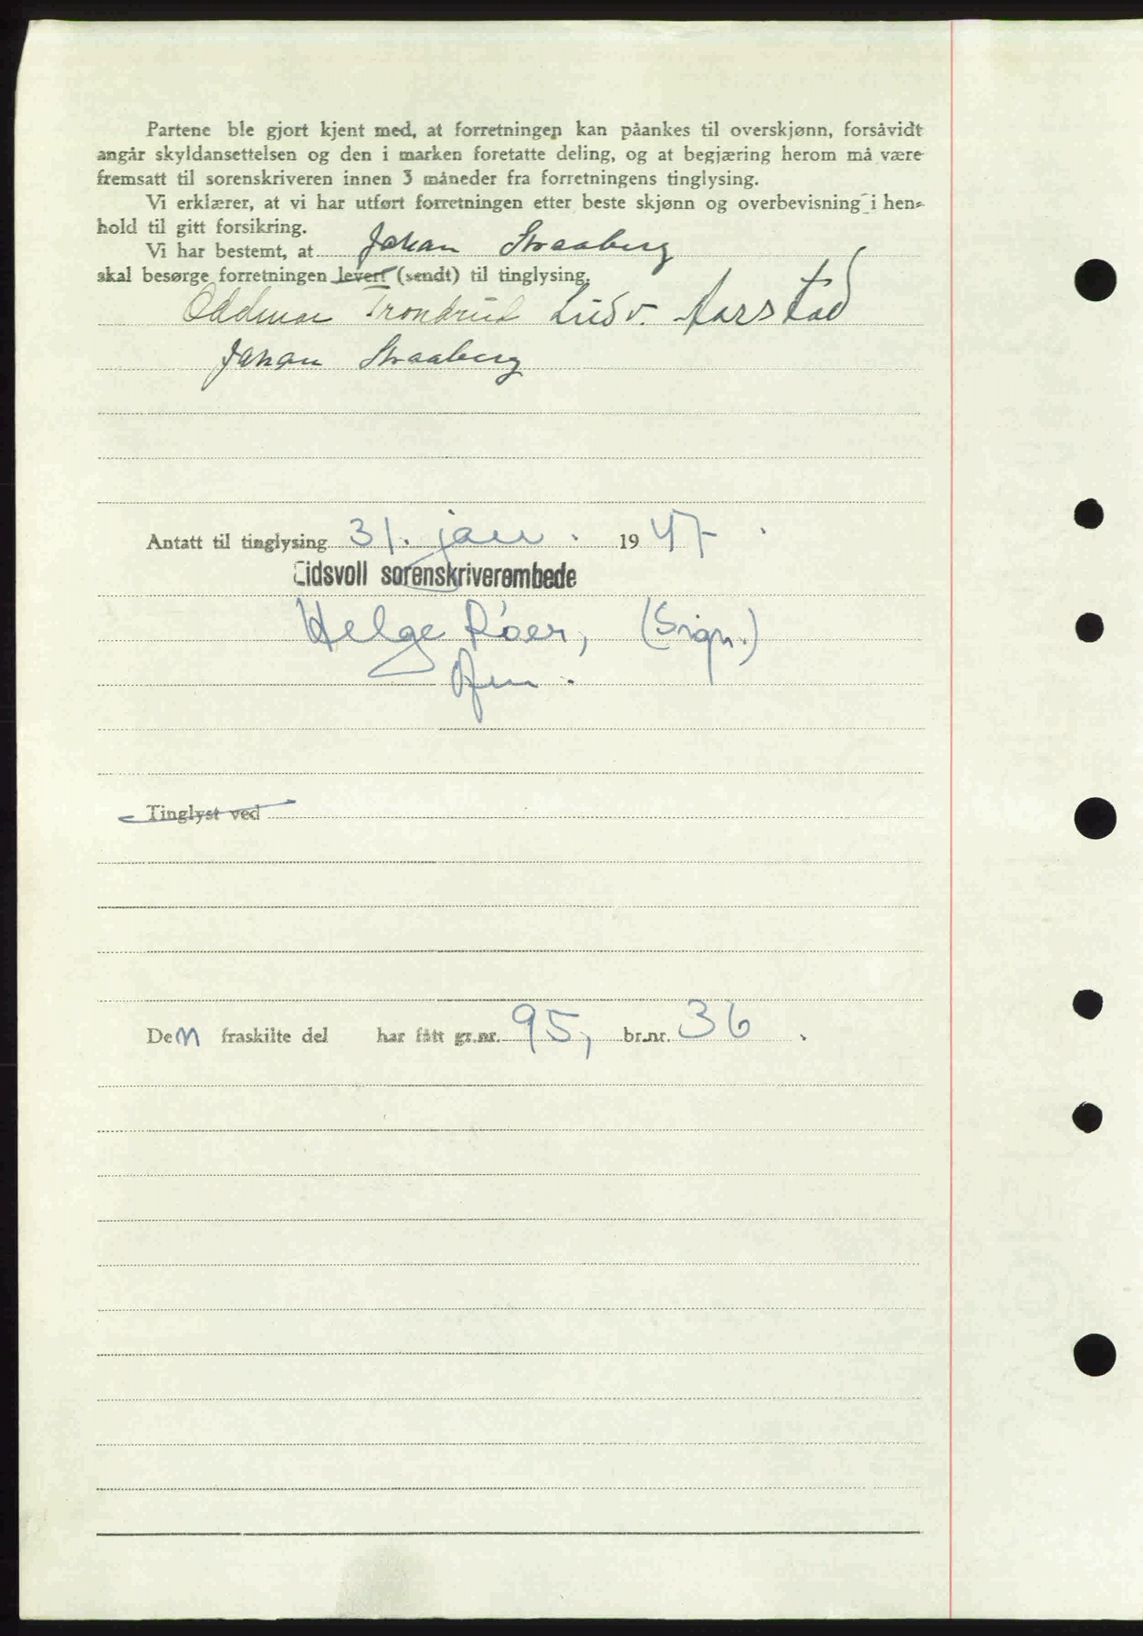 Partene ble gjort kjent med, at forretningen kan påankes til overskjønn, forsåvidt
angår skyldansettelsen og den i marken foretatte deling, og at begjæring herom må være
fremsatt til sorenskriveren innen 3 måneder fra forretningens tinglysing.
Vi erklærer, at vi har utført forretningen etter beste skjønn og overbevisning i hen-
hold til gitt forsikring.
Vi har bestemt, at Johan Straaberg
skal besørge forretningen levert (sendt) til tinglysing.
Oddmar Trondrud Ludv. Aarstad
Johan Straaberg
Antatt til tinglysing 31. jan. 1947.
Eidsvoll sorenskriverembede
Helge Röer, (Sign.)
Tinglyst ved
Den fraskilte del har fått gr.nr. 95, br.nr. 36.